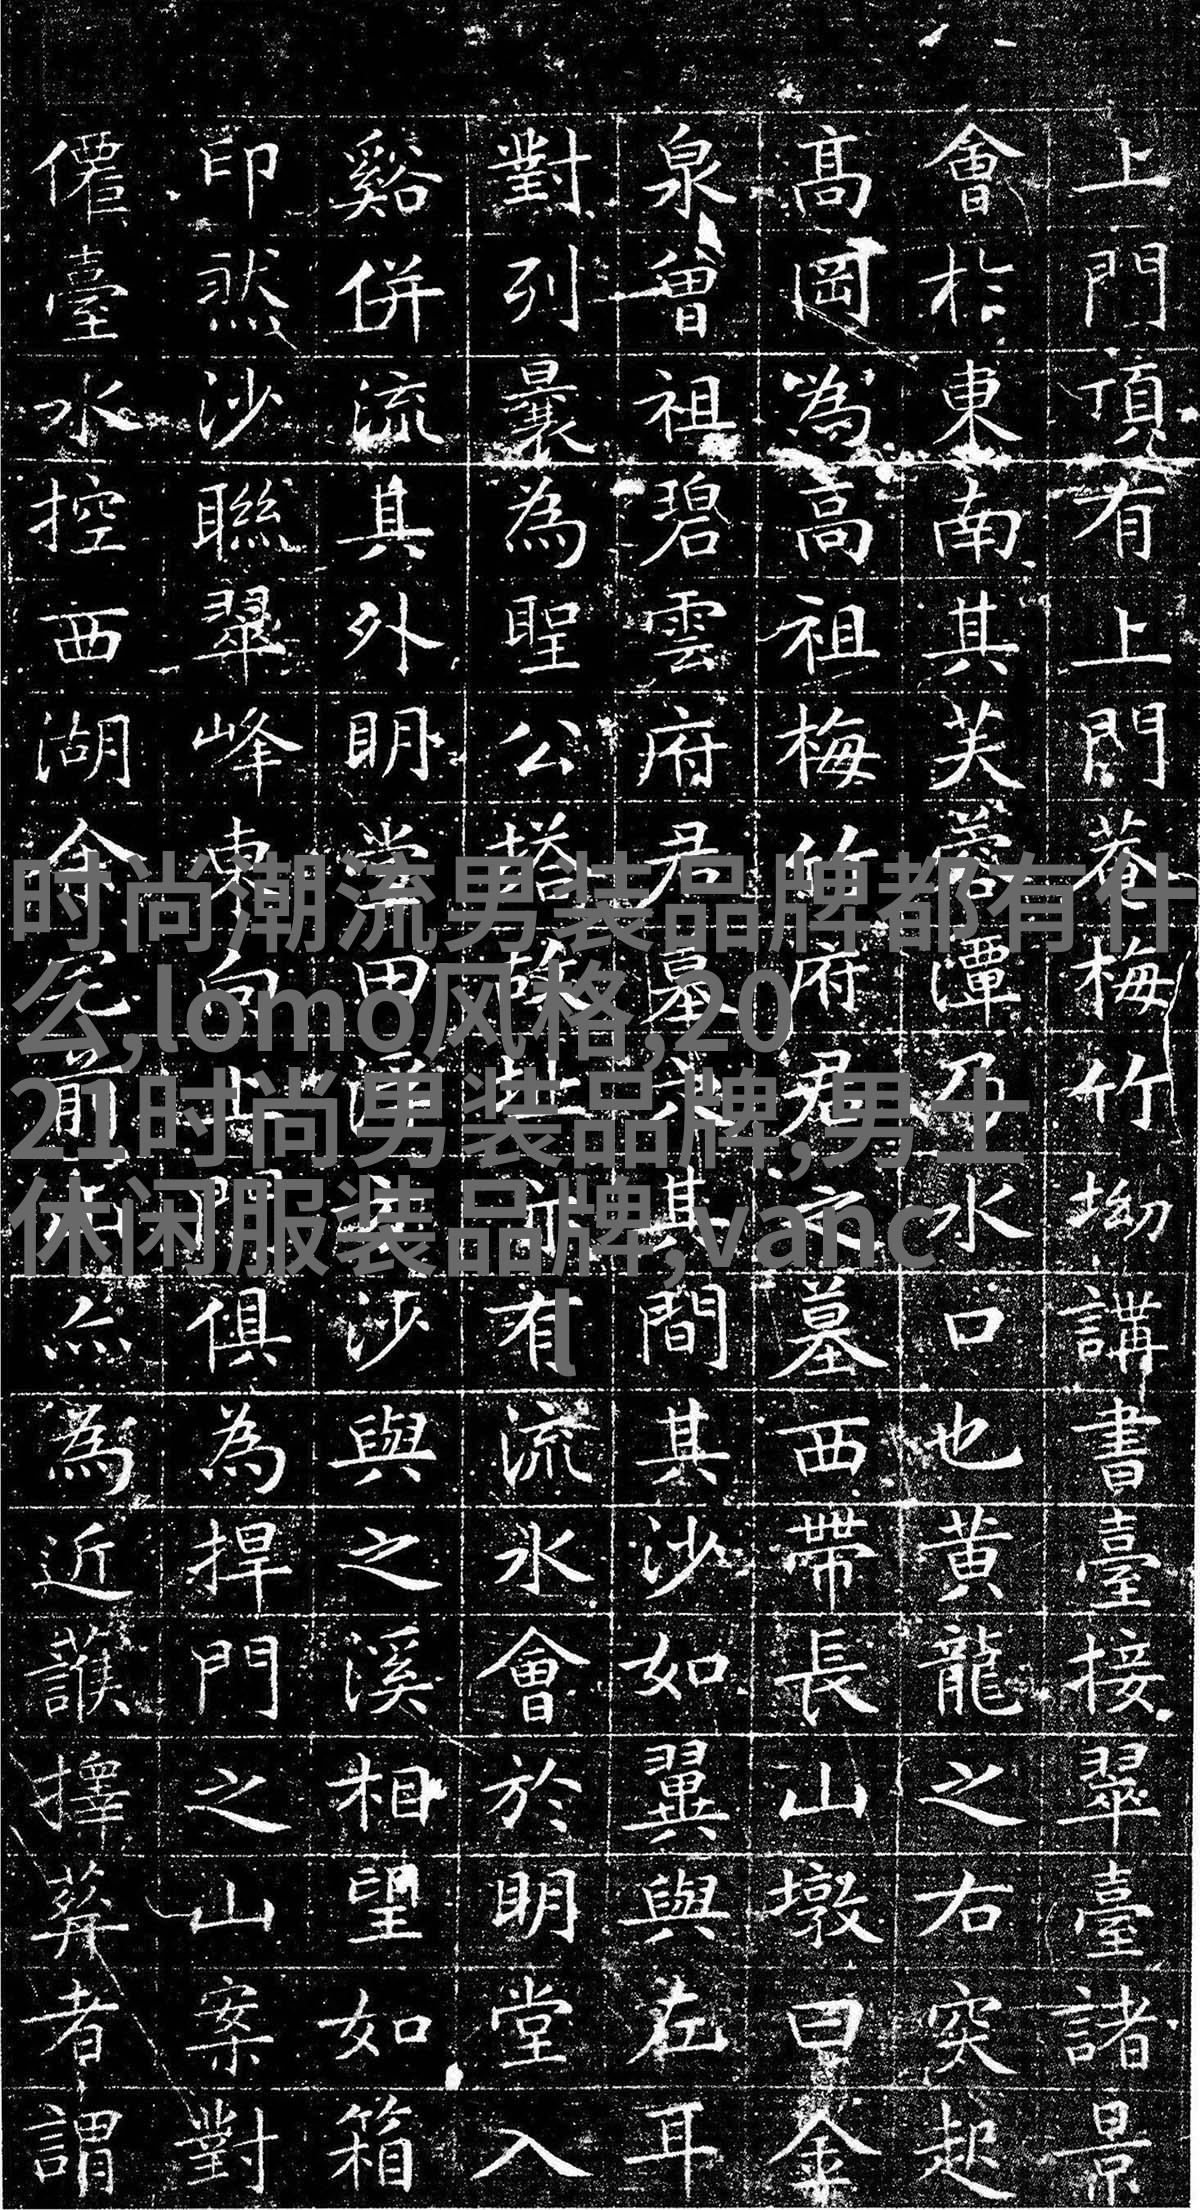 上門頂有上門菴梅竹坳講書臺接翠臺諸景
會於東南其芙蓉潭乃水口也黄龍之右突起
髙岡為高祖梅竹府君之墓西帶長山墩曰金
泉曾祖碧雲府君墓其間其沙如翼與左耳
對列曩為聖公塔有流水會於明堂入
谿併流其外明堂沙與之溪相望如箱
印然沙聯翠峰東向門俱為捍門之山案對
僊臺水控西湖余為近擇葬者謂
时尚潮流男装品牌都有什
么,lomo风格,20
21时尚男装品牌,男士
休闲服装品牌,vanc
l